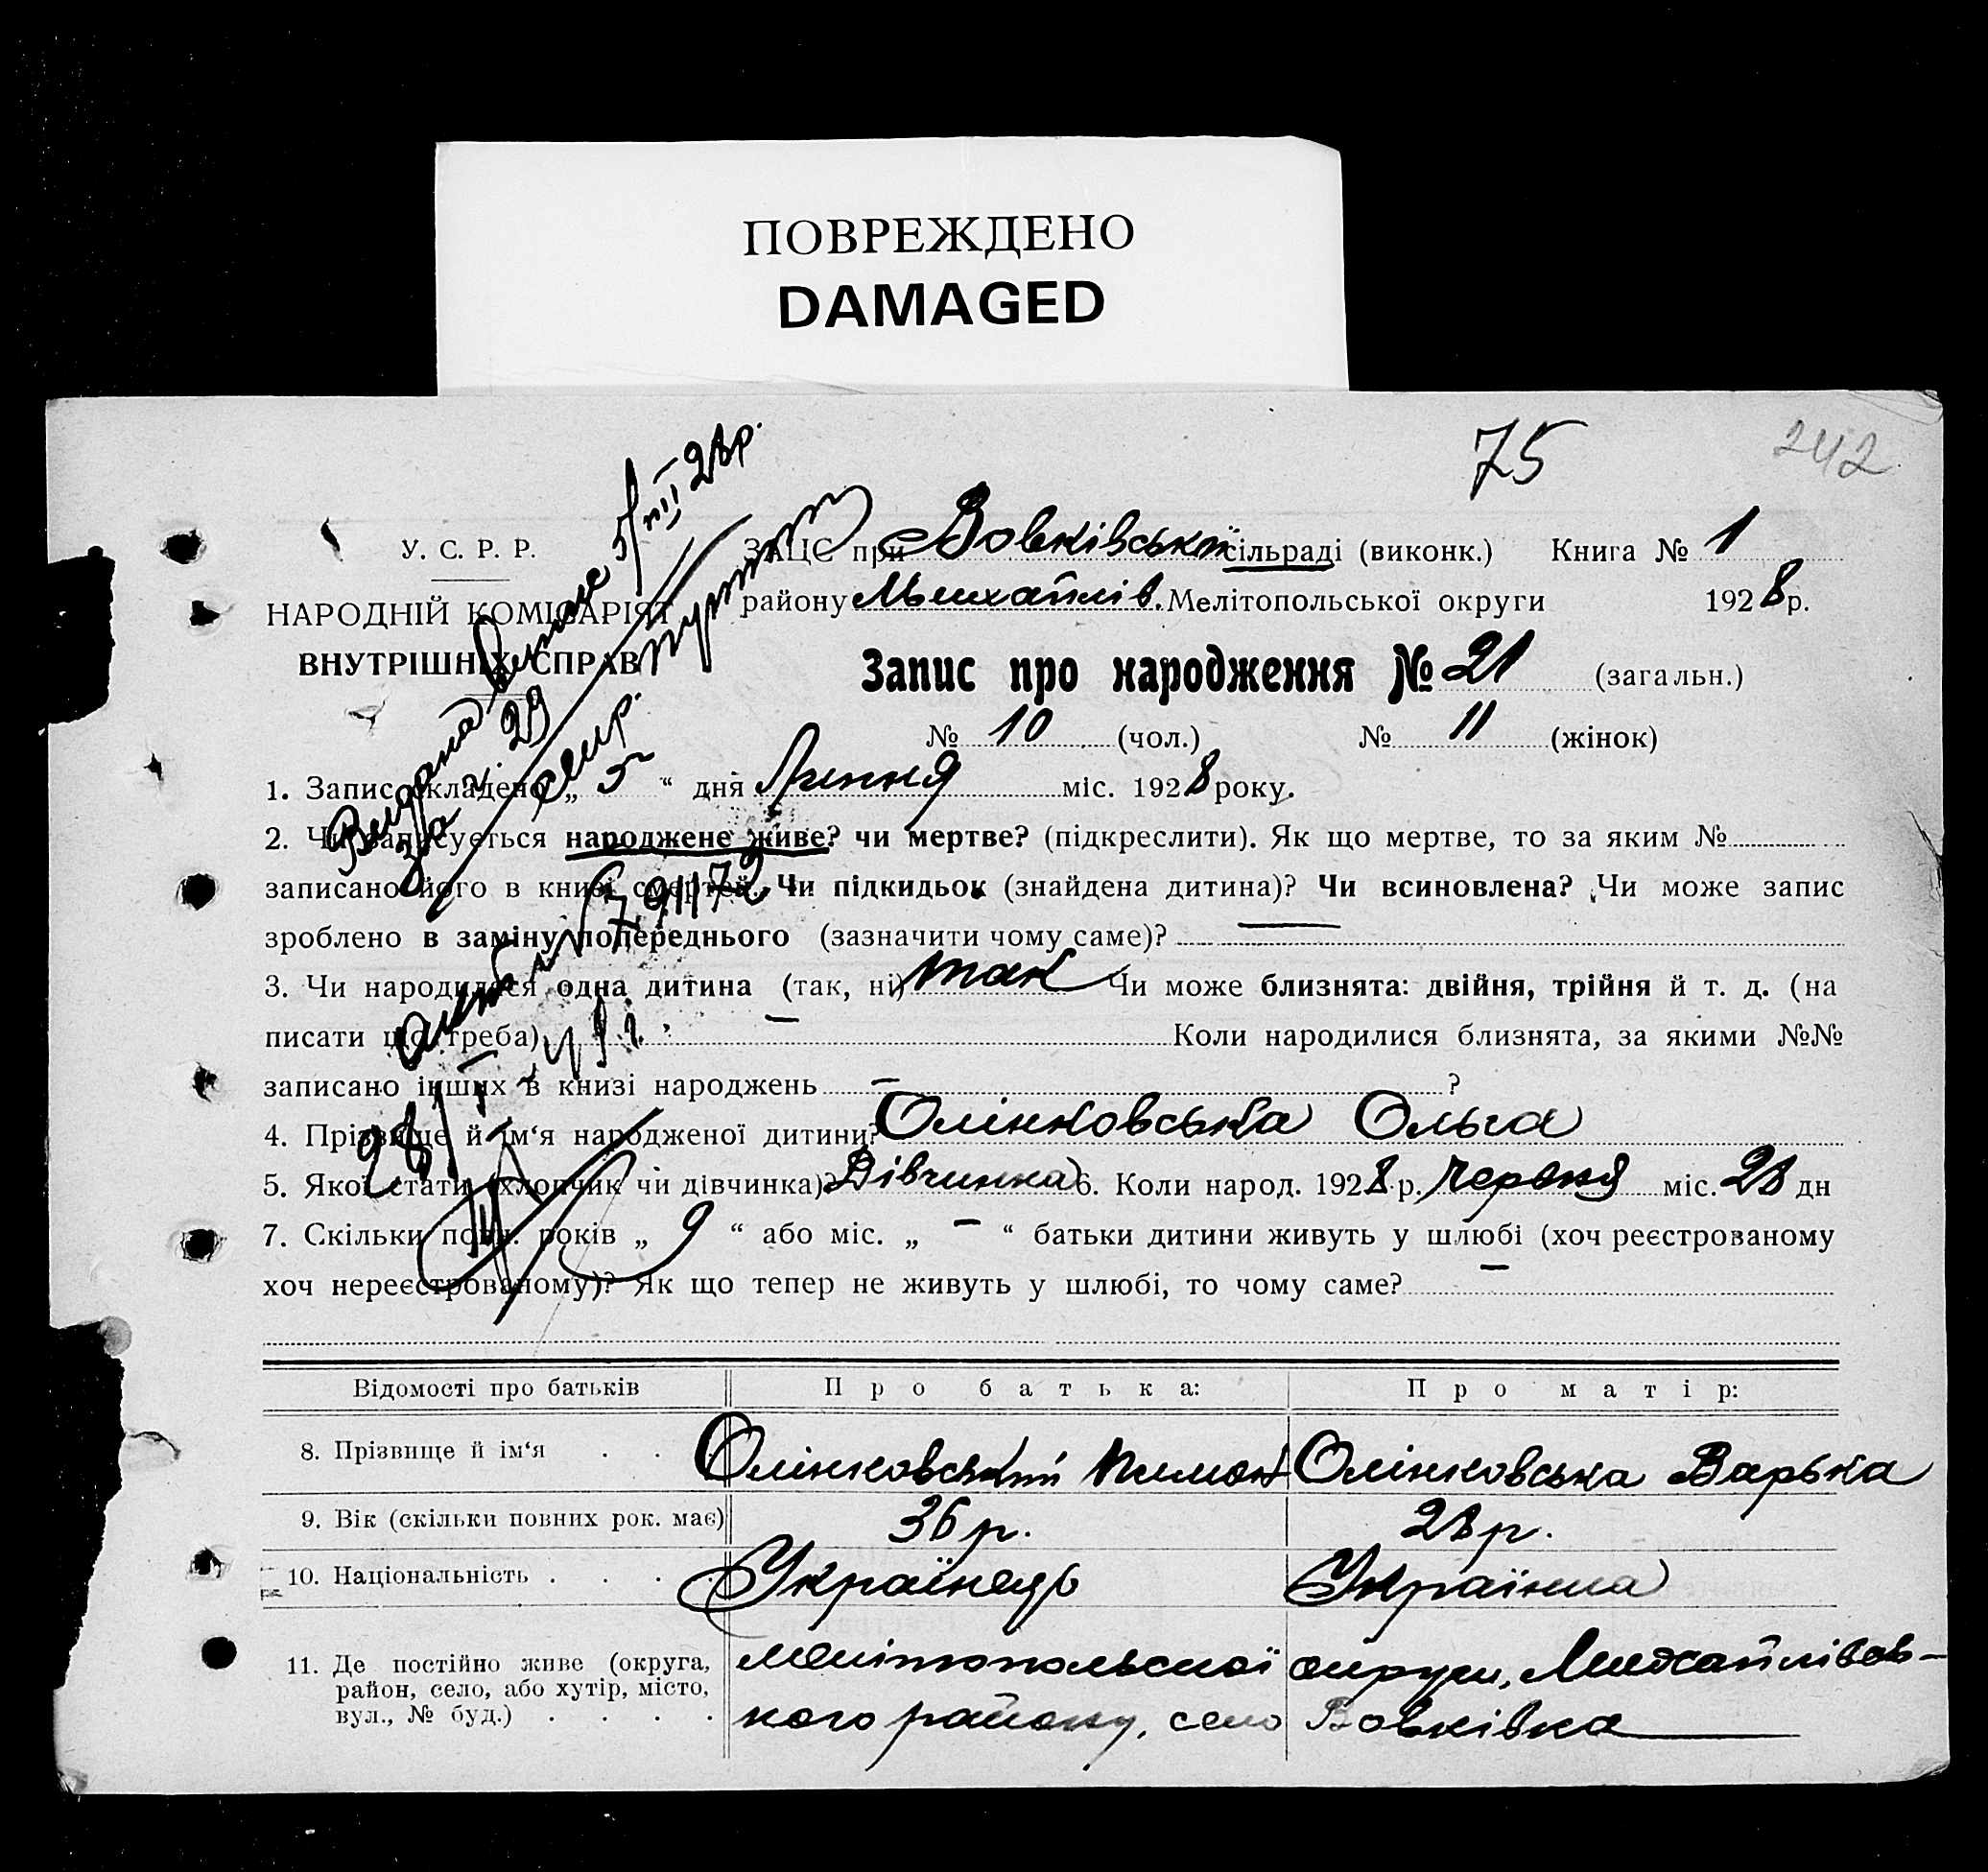 ПОВРЕЖДЕНО
DAMAGED
75
242
У. С. Р. Р.
НАРОДНІЙ КОМІСАРІЯТ
ВНУТРІШНІХ СПРАВ
ЗАЦС при Вовківській сільраді (виконк.) Книга № 1
району Михайлів. Мелітопольської округи 1928 р.
Запис про народження № 21 (загальн.)
№ 10 (чол.) № 11 (жінок)
Видана
за № 29
1. Запис складено „ 5 “ дня Липня міс. 1928 року.
2. Чи записується народжене живе? чи мертве? (підкреслити). Як що мертве, то за яким №
записано його в книзі смертей. Чи підкидьок (знайдена дитина)? Чи всиновлена? Чи може запис
зроблено в заміну попереднього (зазначити чому саме)?
3. Чи народилася одна дитина (так, ні) так Чи може близнята: двійня, трійня й т. д. (на
писати що треба) — Коли народилися близнята, за якими №№
записано інших в книзі народжень — ?
4. Прізвище й ім‘я народженої дитини? Олінковська Ольга
5. Якої стати (хлопчик чи дівчинка)? Дівчинка 6. Коли народ. 1928 р. червня міс. 28 дн
7. Скільки повн. років „ 9 “ або міс. „ — “ батьки дитини живуть у шлюбі (хоч реєстрованому
хоч нереєстрованому)? Як що тепер не живуть у шлюбі, то чому саме? —
Відомості про батьків Про батька: Про матір:
8. Прізвище й ім‘я . . Олінковський Пимон Олінковська Варька
9. Вік (скільки повних рок. має) 36 р. 28 р.
10. Національність . . . . Українець Українка
11. Де постійно живе (округа, район, село, або хутір, місто, вул., № буд.) . . . .
Мелітопольської округи, Михайлівсь-
кого району, село Вовківка